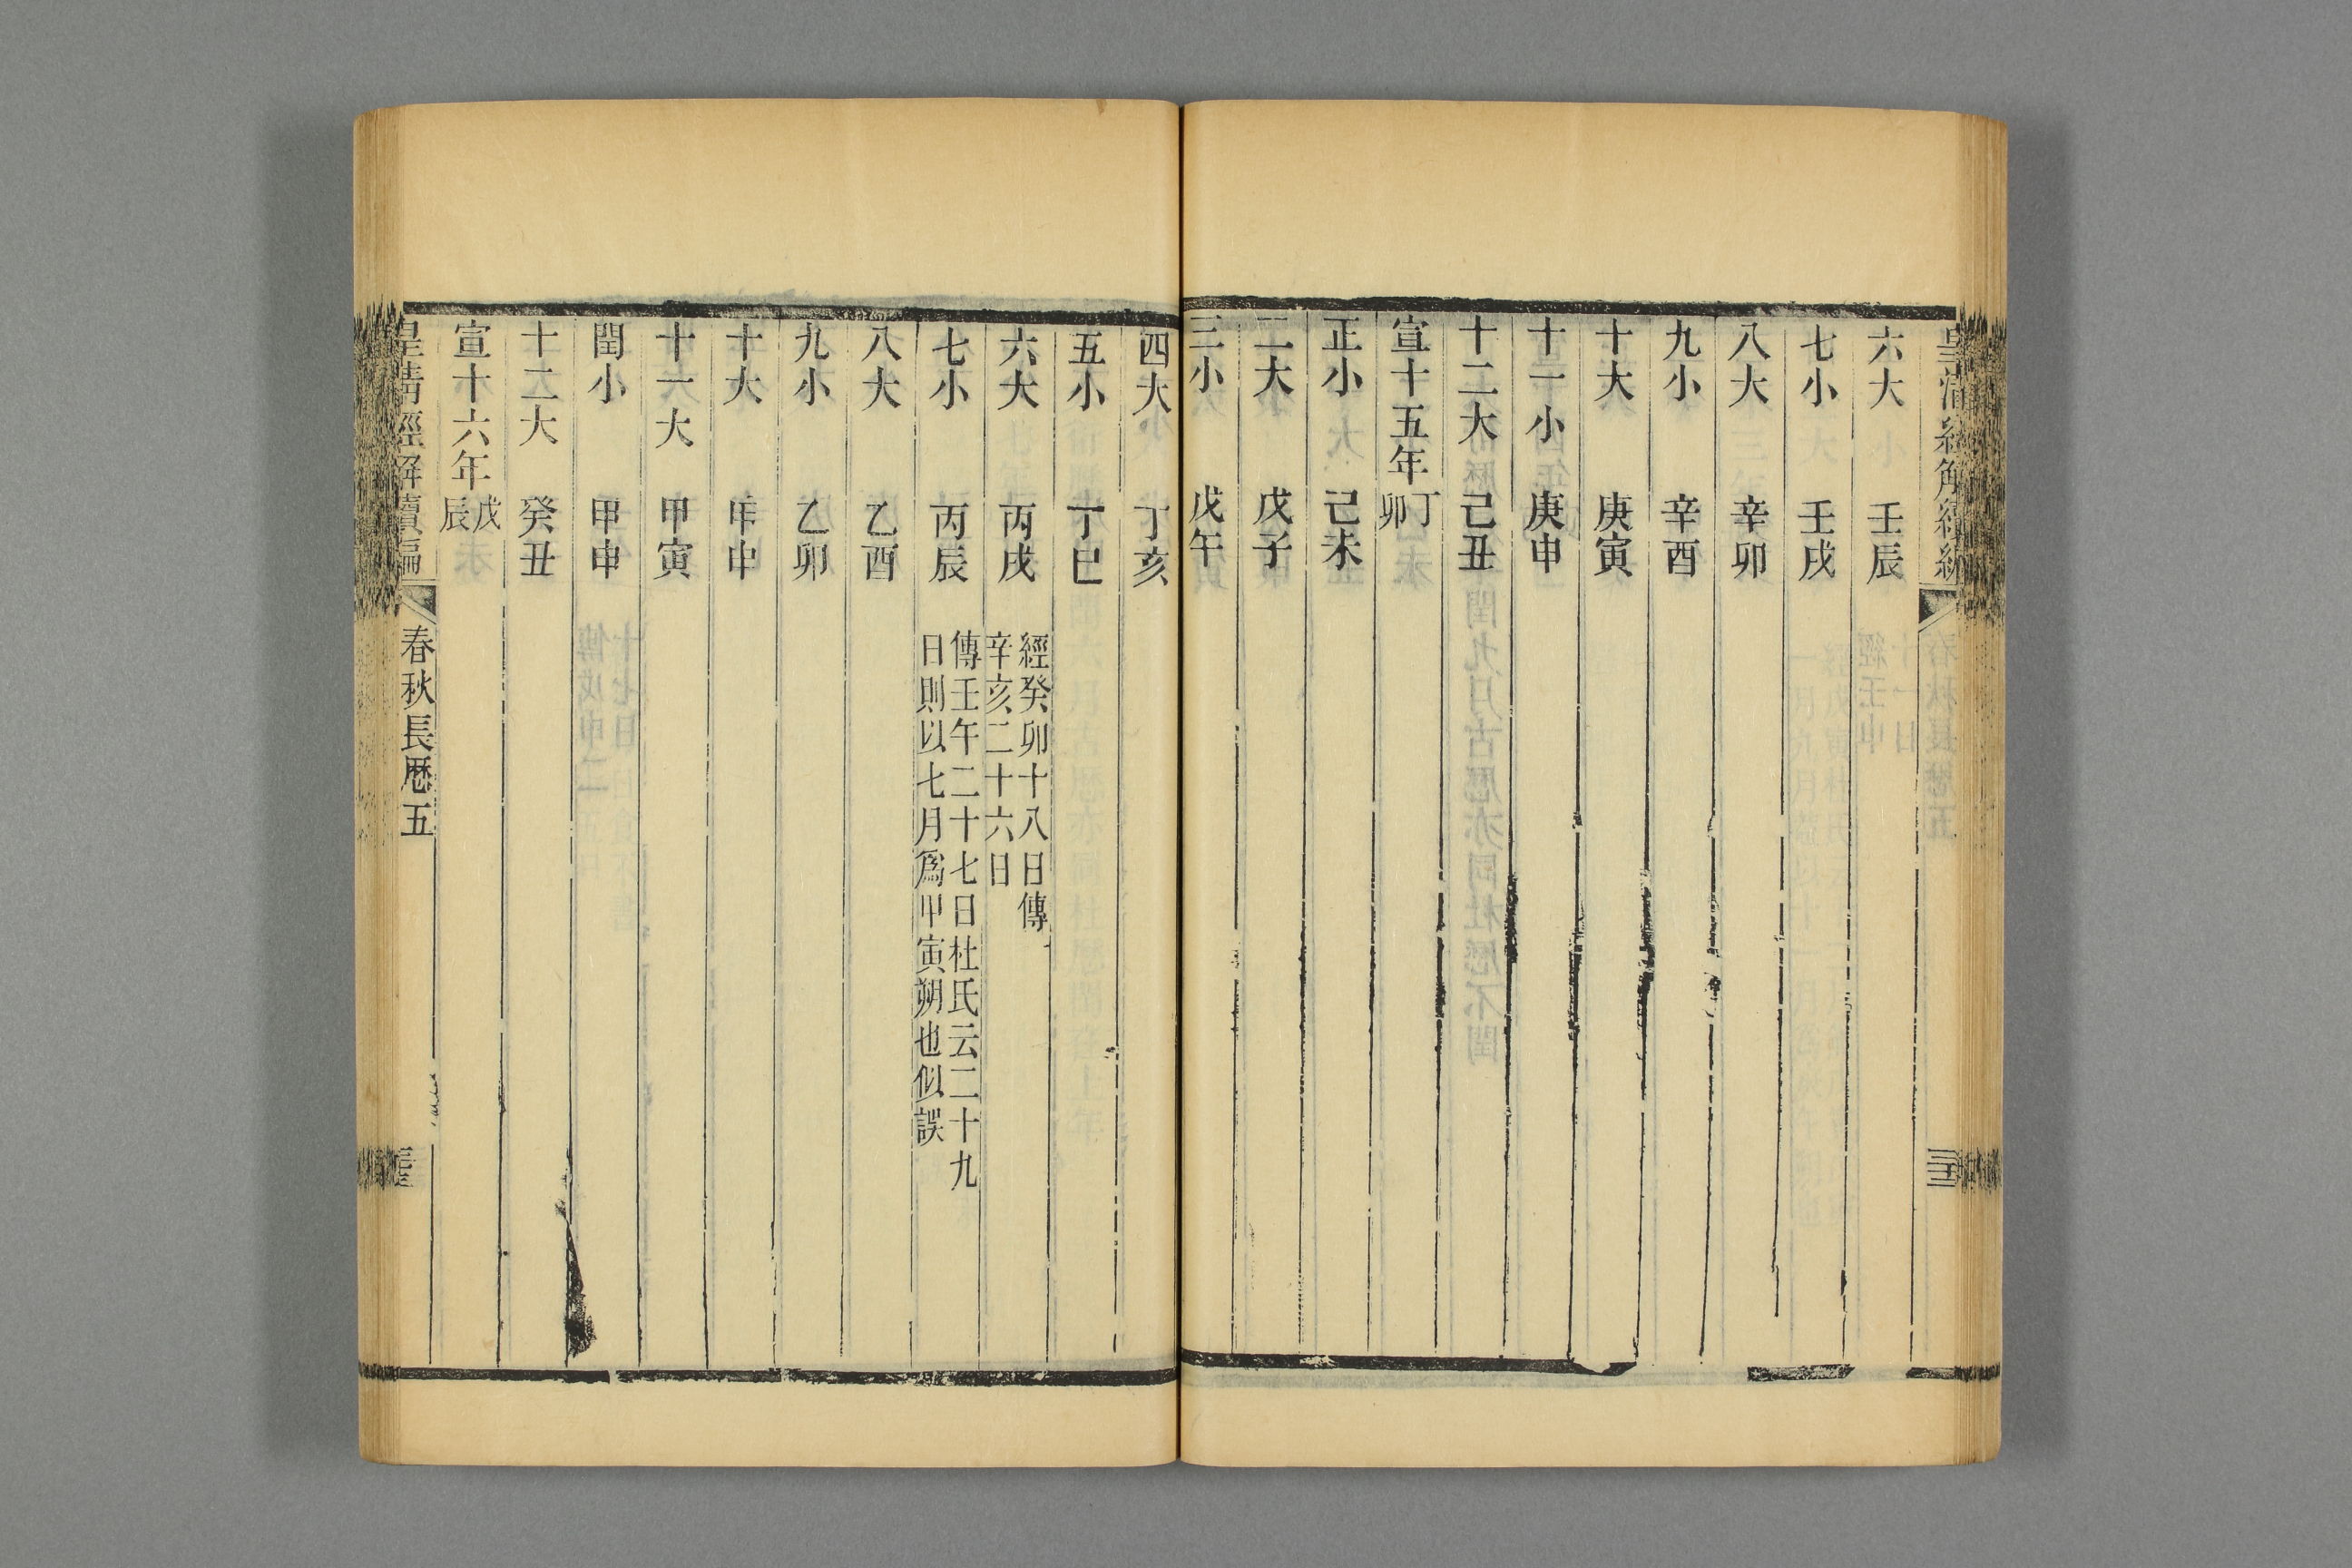 六大 壬辰
七小 壬戌
八大 辛卯
九小 辛酉
十大 庚寅
十一小 庚申
十二大 己丑
宣十五年 丁卯
正小 己未
二大 戊子
三小 戊午
四大 丁亥
五小 丁巳
六大 丙戌 經癸卯十八日傳
辛亥二十六日
七小 丙辰 傳壬午二十七日杜氏云二十九
日則以七月爲甲寅朔也似誤
八大 乙酉
九小 乙卯
十大 甲申
十一大 甲寅
閏小 甲申
十二大 癸丑
宣十六年 戊辰
皇淸經解續編 春秋長厯五